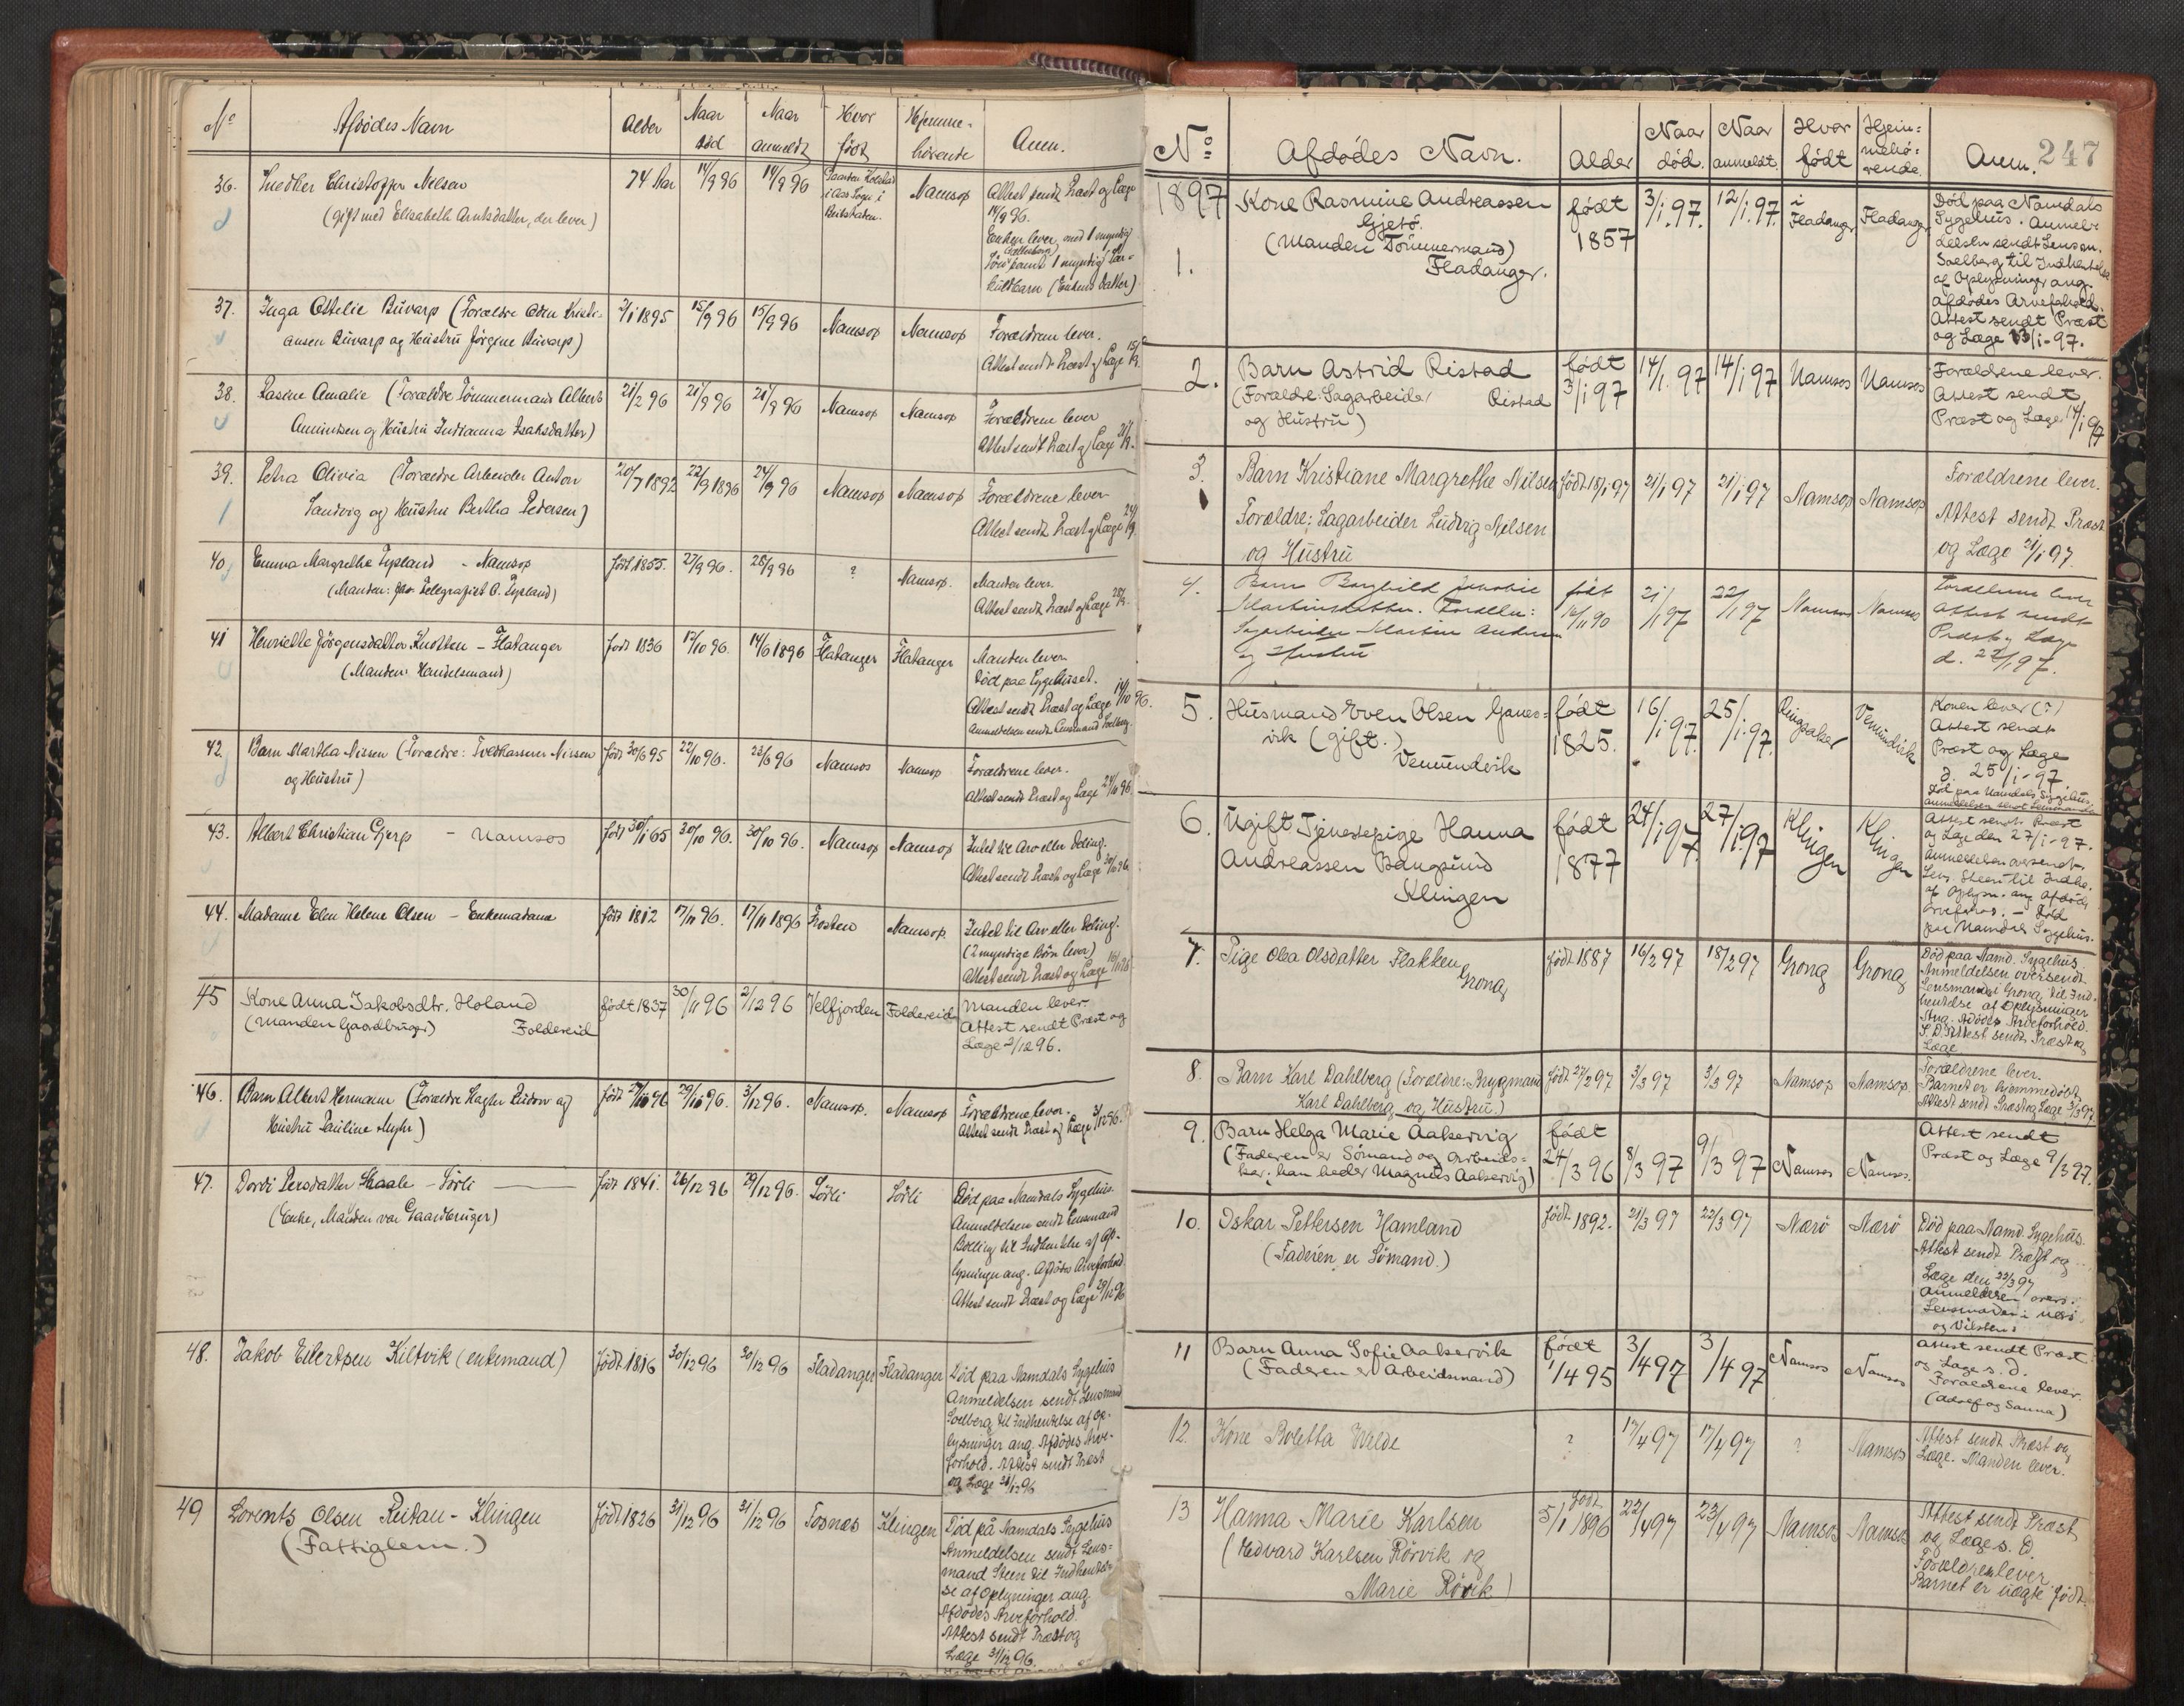 No
Afdødes Navn
Alder
Naar død
Naar anmeldt
Hvor født
Hjemme-hørende
Anm.
36. Christoffer Nelsen
(gift med Elisabeth Arntsdatter, der lever)
74 Aar
14/9 96
14/9 96
Namsos
Attest sendt Præst og Læge
14/9 96.
Enken lever med 1 myndig
37. Inga Ottilie Buvarp (Forældre Kristi-
ansen Buvarp og Hustru Jørgine Buvarp)
2/1 1895
15/9 96
15/9 96
Namsos
Namsos
Forældrene lever.
Attest sendt Præst og Læge 15/9.
38. Amalie (Forældre Tømmermand Albert
og Hustru Isaksdatter)
21/2 96
21/9 96
21/9 96
Namsos
Namsos
Forældrene lever
Attest sendt Præst og Læge 21/9.
39. Petra Olivia (Forældre Arbeider Anton
Landvig og Hustru Bertha Pedersen)
20/7 1892
22/9 1896
24/9 96
Namsos
Namsos
Forældrene lever
Attest sendt Præst og Læge 24/9.
40. Emma Margrethe - Namsos
(Manden: Telegrafist O.
født 1855.
27/9 96.
28/9 96
?
Namsos.
Manden lever.
Attest sendt Præst og Læge 28/9.
41 Henriette Jørgensdatter Knotten - Flatanger
(Manden: Handelsmand)
født 1836
Flatanger
Flatanger
Manden lever
Død paa Sygehuset.
Attest sendt Præst og Læge 14/10 96.
Anmeldelsen sendt Lensmand Soelberg.
42. Barn Martha Nissen (Forældre: Nissen
og Hustru)
22/10 96.
Namsos
Namsos
Forældrene lever.
Attest sendt Præst og Læge
43. Albert Christian Gjerp - Namsos
30/10 96.
30/10 96.
Namsos
Namsos
Intet til Arv eller Deling.
Attest sendt Præst og Læge 30/10 96
44. Madame Elen Helene Olsen - Enkemadame
født 1812
17/11 96.
17/11 1896
Frosten
Namsos.
Intet til Arv eller Deling.
(2 myndige Børn lever)
Attest sendt Præst og Læge
45 Kone Anna Jakobsdtr. Holand
(Manden Gaardbruger) Foldereid
født 1837
30/11 96
2/12 96
Velfjorden
Foldereid
Manden lever.
Attest sendt Præst og
Læge 2/12 96.
46. Barn Albert Hermann (Forældre og
Hustru Pauline Myhr)
3/12 96.
Namsos.
Namsos
Forældrene lever.
Attest sendt Præst og Læge 3/12 96.
47. Dordi Persdatter Skaale - Sørli
(Enke, Manden var Gaardbruger)
født 1841.
26/12 96
29/12 96.
Sørli
Sørli
Død paa Namdals Sygehus.
Anmeldelsen sendt Lensmand
til Indhentelse af Op-
lysninger ang. Afdødes Arveforhold.
Attest sendt Præst og Læge 29/12 96
48. Jakob Eilertsen Kiltvik (enkemand)
født 1816
30/12 96
30/12 96
Fladanger
Fladanger
Død paa Namdals Sygehus
Anmeldelsen sendt Lensmand
Soelberg til Indhentelse af Op-
lysninger ang. Afdødes Arve-
forhold. Attest sendt Præst
og Læge
49 Lorents Olsen Reitan - Klingen
(Fattiglem.)
født 1826
31/12 96
31/12 96
Fosnæs
Klingen
Død på Namdals Sygehus
Anmeldelsen sendt Lens=
mand Steen til Indhentel-
se af Oplysninger ang.
Afdødes Arveforhold.
Attest sendt Præst og
Læge 31/12 96.
247
No
Afdødes Navn.
Alder
Naar død.
Naar anmeldt.
Hvor født
Hjem=mehø=rende.
Anm.
1897
1.
Kone Rasmine Andreassen
Gjetø.
(Manden Tømmermand)
Fladanger.
født
1857
3/1.97.
12/1.97.
i
Fladanger
Fladanger
Død paa Namdals
Sygehus. Anmel=
delsen sendt Lensm.
Soelberg til Indhentelse
af Oplysninger ang.
afdødes Arveforhold.
Attest sendt Præst
og Læge 13/1-97.
2. Barn Astrid Ristad
(Forældre: Sagarbeider Ristad
og Hustru)
født
3/1 97
14/1. 97
14/1 97
Namsos
Namsos
Forældrene lever.
Attest sendt
Præst og Læge 14/1 97
3. Barn Kristiane Margrethe Nilsen
Forældre: Sagarbeider Ludvig Nilsen
og Hustru
født 18/1 97
21/1 97
21/1 97
Namsos
Namsos
Forældrene lever.
Attest sendt Præst
og Læge 21/1 97.
4. Barn Borghild Jakobie
Martinsdatter. Forældre:
Sagarbeider Martin Andersen
og Hustru
født
21/1 97
22/1 97
Namsos
Namsos
Forældrene lever
Attest sendt
Præst og Læge
d. 22/1 97.
5. Husmand Even Olsen
vik (gift.)
Vemundvik
født
1825.
16/1 97.
25/1.97.
Ringsaker
Vemundvik
Konen lever (?)
Attest sendt
Præst og Læge
d. 25/1-97
Død paa Namdals Sygehus.
anmeldelsen sendt Lensmanden
6. Ugift Tjenestepige Hanna
Andreassen Bangsund
Klingen
født
1877
24/1 97.
27/1.97
Klingen
Klingen
Attest sendt Præst
og Læge den 27/1-97.
Anmeldelsen oversendt
Lens. Steen til Indh.
af Oplysn. ang. afdødes
arveforh. - Død
paa Namdals Sygehus.
7. Pige Oba Olsdatter Flakken
Grong
født 1887
16/2 97
18/2 97
Grong
Grong
Død paa Namd. Sygehus.
Anmeldelsen oversendt
Lensmand i Grong til Ind-
hentelse af Oplysninger
Ang. Afdødes Arveforhold.
S.D. Attest sendt Præst og
Læge
8. Barn Karl Dahlberg (Forældre: Brygmand
Karl Dahlberg og Hustru.)
født 27/2 97
3/3 97
3/3 97
Namsos
Namsos.
Forældrene lever.
Barnet er hjemmedøbt
Attest sendt Præst og Læge 3/3 97.
9. Barn Helga Marie Aakervig
(Faderen er Sømand og Arbeids=
kar; han heder Magnus Aakervig)
født
24/3 96
8/3 97
9/3 97
Namsos
Namsos.
Attest sendt
Præst og Læge 9/3 97.
10. Oskar Pettersen Hamland
(Faderen er Sømand.)
født 1892.
21/3 97
22/3 97
Nærø
Nærø
Død paa Namd. Sygehus.
Attest sendt Præst og
Læge den 22/3 97
Anmeldelsen overs.
Lensmanden i Nærø
11 Barn Anna Sofie Aakervik
(Faderen er Arbeidsmand)
født
1/4 95
3/4 97
3/4 97
Namsos
Namsos
Attest sendt Præst
og Læge s. D.
Forældrene lever.
12. Kone Boletta Welde
?
17/4 97
17/4 97
?
Namsos
Attest sendt Præst og
Læge. Manden lever.
13 Hanna Marie Karlsen
(Edvard Karlsen Rörvik og
Marie Rövik)
født
5/1 1896
22/4 97
23/4 97
Namsos
Namsos
Attest sendt Præst
og Læge s. D.
Forældrene lever.
Barnet er uægte født.